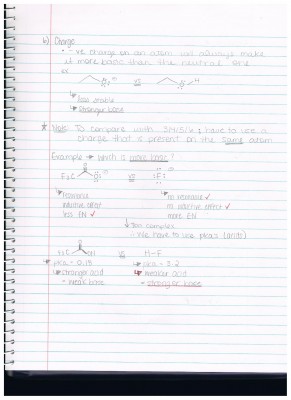 b) Charge
• -ve charge on an atom will always make
it more basic than the neutral one
ex
O ⊖ vs O H
↳ less stable
↳ stronger base
* Note: To compare with
charge that is present on the same atom
Example → which is more basic?
F₃C O ⊖ vs :F: ⊖
↳ resonance
inductive effect
less EN ✓
↳ no resonance ✓
no inductive effect ✓
more EN
↓ too complex
- we have to use pka's (acids)
F₃C OH vs H-F
↳ pka = 0.18
↳ pka = 3.2
↳ stronger acid
- weak base
↳ weaker acid
- stronger base